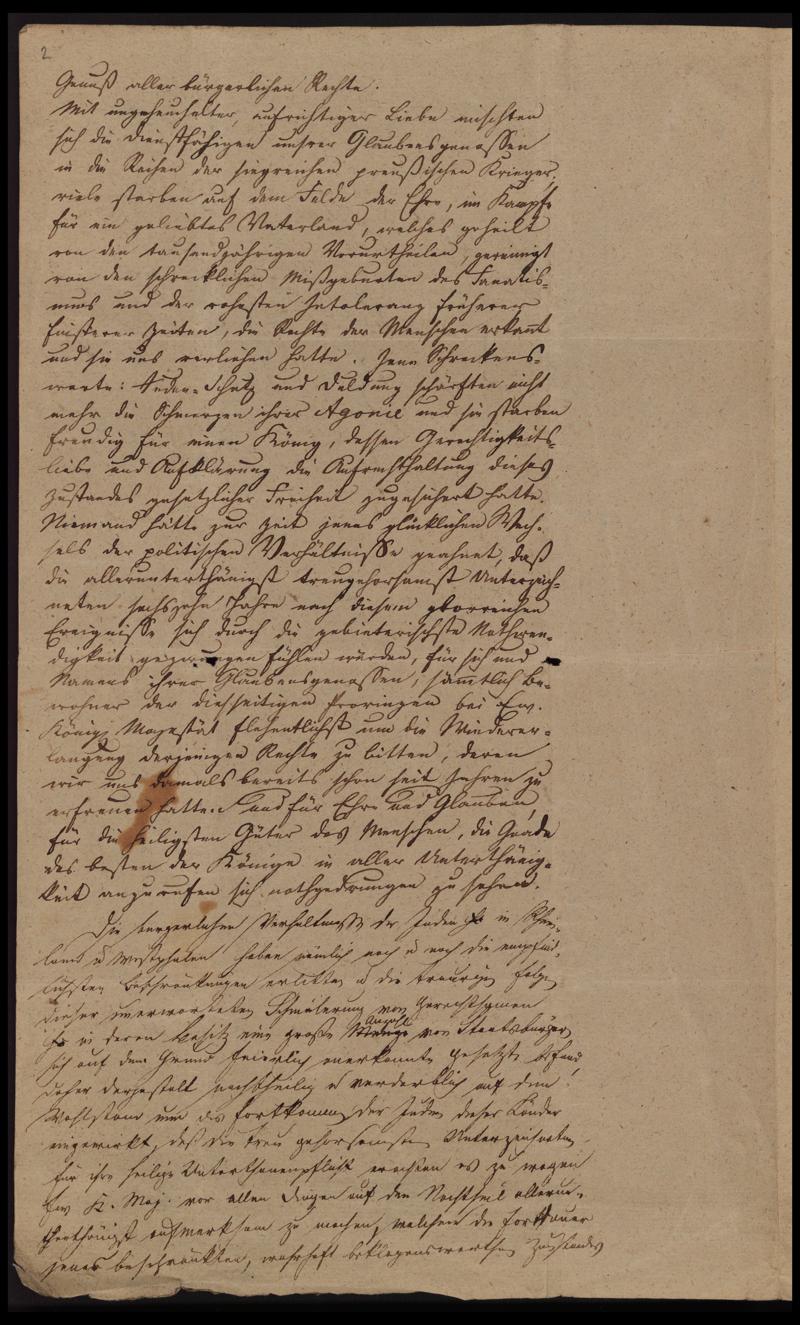 2
Genuß aller bürgerlichen Rechte.
Mit ungeheuchelter, aufrichtiger Liebe mischten
sich die Dienstfähigen unsrer Glaubensgenossen
in die Reihen der siegreichen preußischen Krieger,
viele starben auf dem Felde der Ehre, im Kampfe
für ein geliebtes Vaterland, welches geheilt
von den tausendjährigen Vorurtheilen, gereinigt
von den schrecklichen Mißgeburten des Fanatis-
mus und der rohesten Intoleranz früherer
finsterer Zeiten, die Rechte der Menschen erkannt
und sie uns verliehen hatte. Jene Schreckens-
worte: Juden-Schutz und Duldung schärften nicht
mehr die Schmerzen ihrer Agonie und sie starben
freudig für einen König, dessen Gerechtigkeits-
liebe und Aufklärung die Aufrechthaltung dieses
Zustandes gesetzlicher Freiheit zugesichert hatte.
Niemand hätte zur Zeit jenes glücklichen Wech-
sels der politischen Verhältnisse geahnet, daß
die allerunterthänigst treugehorsamst Unterzeich-
neten sechszehn Jahre nach diesem glorreichen
Ereignisse sich durch die gebieterischste Nothwen-
digkeit gezwungen fühlen würden, für sich und
Namens ihrer Glaubensgenossen, sämmtlich Be-
wohner der diesseitigen Provinzen bei Ew.
Königl. Majestät flehentlichst um die Wiederer-
langung derjenigen Rechte zu bitten, deren
wir uns damals bereits schon seit Jahren zu
erfreuen hatten und für Ehre und Glauben,
für die heiligsten Güter des Menschen, die Gnade
des besten der Könige in aller Unterthänig-
keit anzurufen sich nothgedrungen zu sehen.
Die bürgerlichen Verhältnisse der Juden in Rhein-
land u Westphalen haben nämlich nach u nach die empfind-
lichsten Beschränkungen erlitten u die traurigen Folgen
dieser unerwarteten Schmälerung von Gerechtsamen
in deren Besitz eine große Anzahl von Staatsbürger
sich auf den Grund feierlich anerkannter Gesetze befand
daher dergestalt nachtheilig u verderblich auf den
Wohlstand und das Fortkommen der Juden dieser Länder
eingewirkt, daß die treu gehorsamsten Unterzeichneten
für ihre heilige Unterthanenpflicht erachten es zu wagen
Ew K. Maj. vor allen Dingen auf den Nachtheil allerun-
terthänigst aufmerksam zu machen, welchen die Fortdauer
jenes beschränkten, wahrhaft beklagenswerthen Zustandes